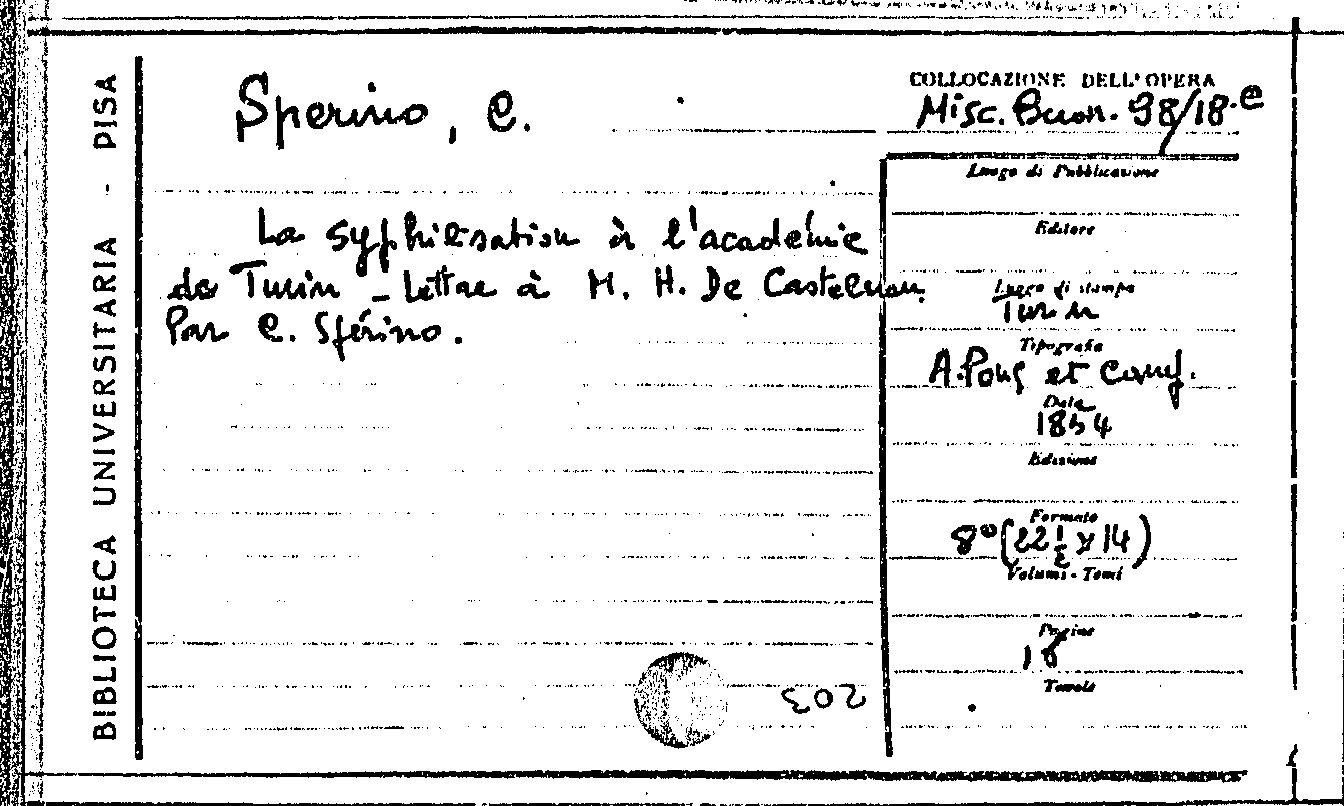 BIBLIOTECA UNIVERSITARIA - PISA
Sperino, C.
La syphilisation à l'académie
de Turin - lettre à M. H. De Castelnau.
Par C. Spérino.
203
COLLOCAZIONE DELL'OPERA
Misc. Buon. 98/18.e
Luogo di Pubblicazione
Editore
Luogo di stampa
Turin
Tipografia
A. Pons et comp.
Data
1854
Edizione
Formato
8° (22 1/2 x 14)
Volumi - Tomi
Pagine
Tavole